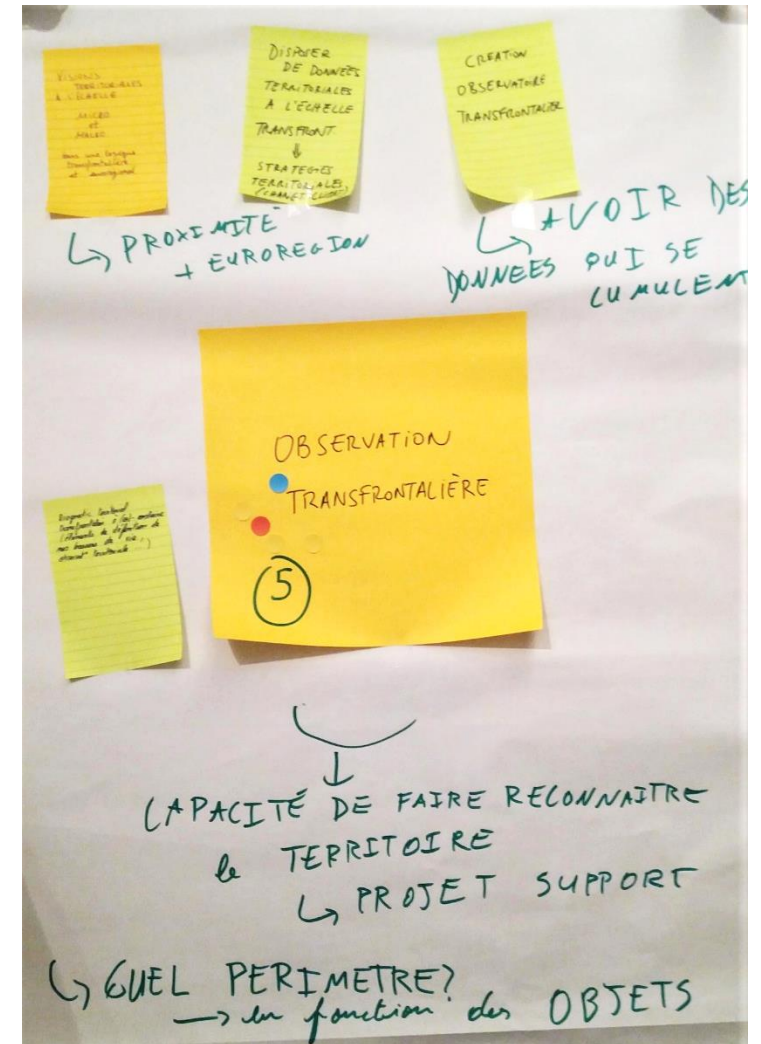 VISIONS
TERRITORIALES
À L'ÉCHELLE
MICRO
et
MACRO
dans une logique
transfrontalière
et eurorégional
DISPOSER
DE DONNÉES
TERRITORIALES
A L'ECHELLE
TRANSFRONT
⇓
STRATEGIES
TERRITORIALES
CREATION
OBSERVATOIRE
TRANSFRONTALIER
↳ PROXIMITÉ
+ EUROREGION
↳ AVOIR DES
DONNEES QUI SE
CUMULENT
OBSERVATION
TRANSFRONTALIÈRE
5
Diagnostic territorial
transfrontalier
éléments de définition de
nos bassins de vie,
↓
CAPACITÉ DE FAIRE RECONNAITRE
le TERRITOIRE
↳ PROJET SUPPORT
↳ QUEL PERIMETRE?
→ en fonction des OBJETS